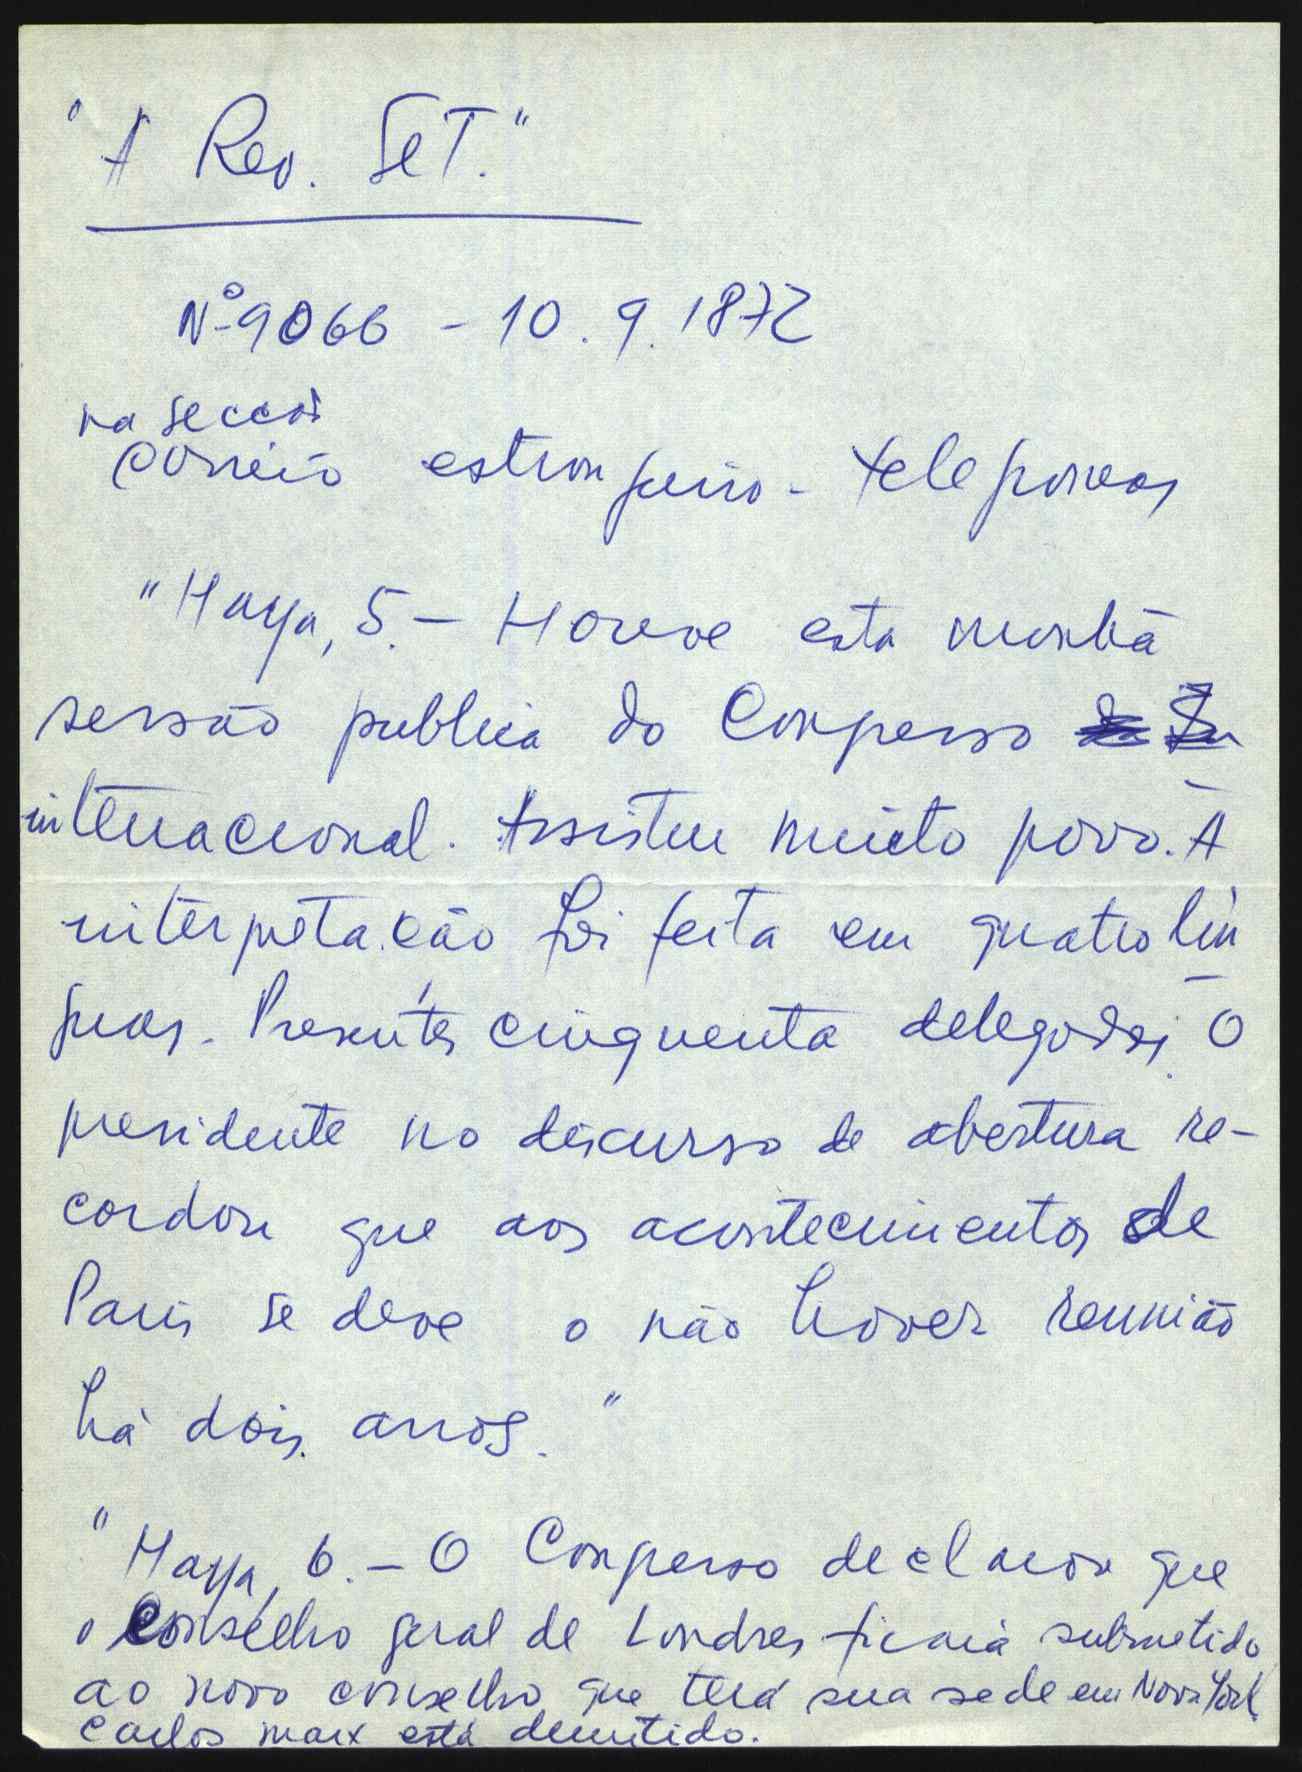 "A Rev. Set."
Nº 9066 - 10.9.1872
na secção
correio estrangeiro - telegramas
"Haya, 5. - Houve esta manhã
sessão publica do Congresso
internacional. Assistiu muito povo. A
interpretação foi feita em quatro lín
guas. Presentes cinquenta delegados. O
presidente no discurso de abertura re-
cordou que aos acontecimentos de
Paris se deve o não haver reunião
há dois anos."
"Haya, 6. - O Congresso declarou que
o Conselho geral de Londres ficaria submetido
ao novo conselho que terá sua sede em Nova York.
Carlos Marx está demitido.